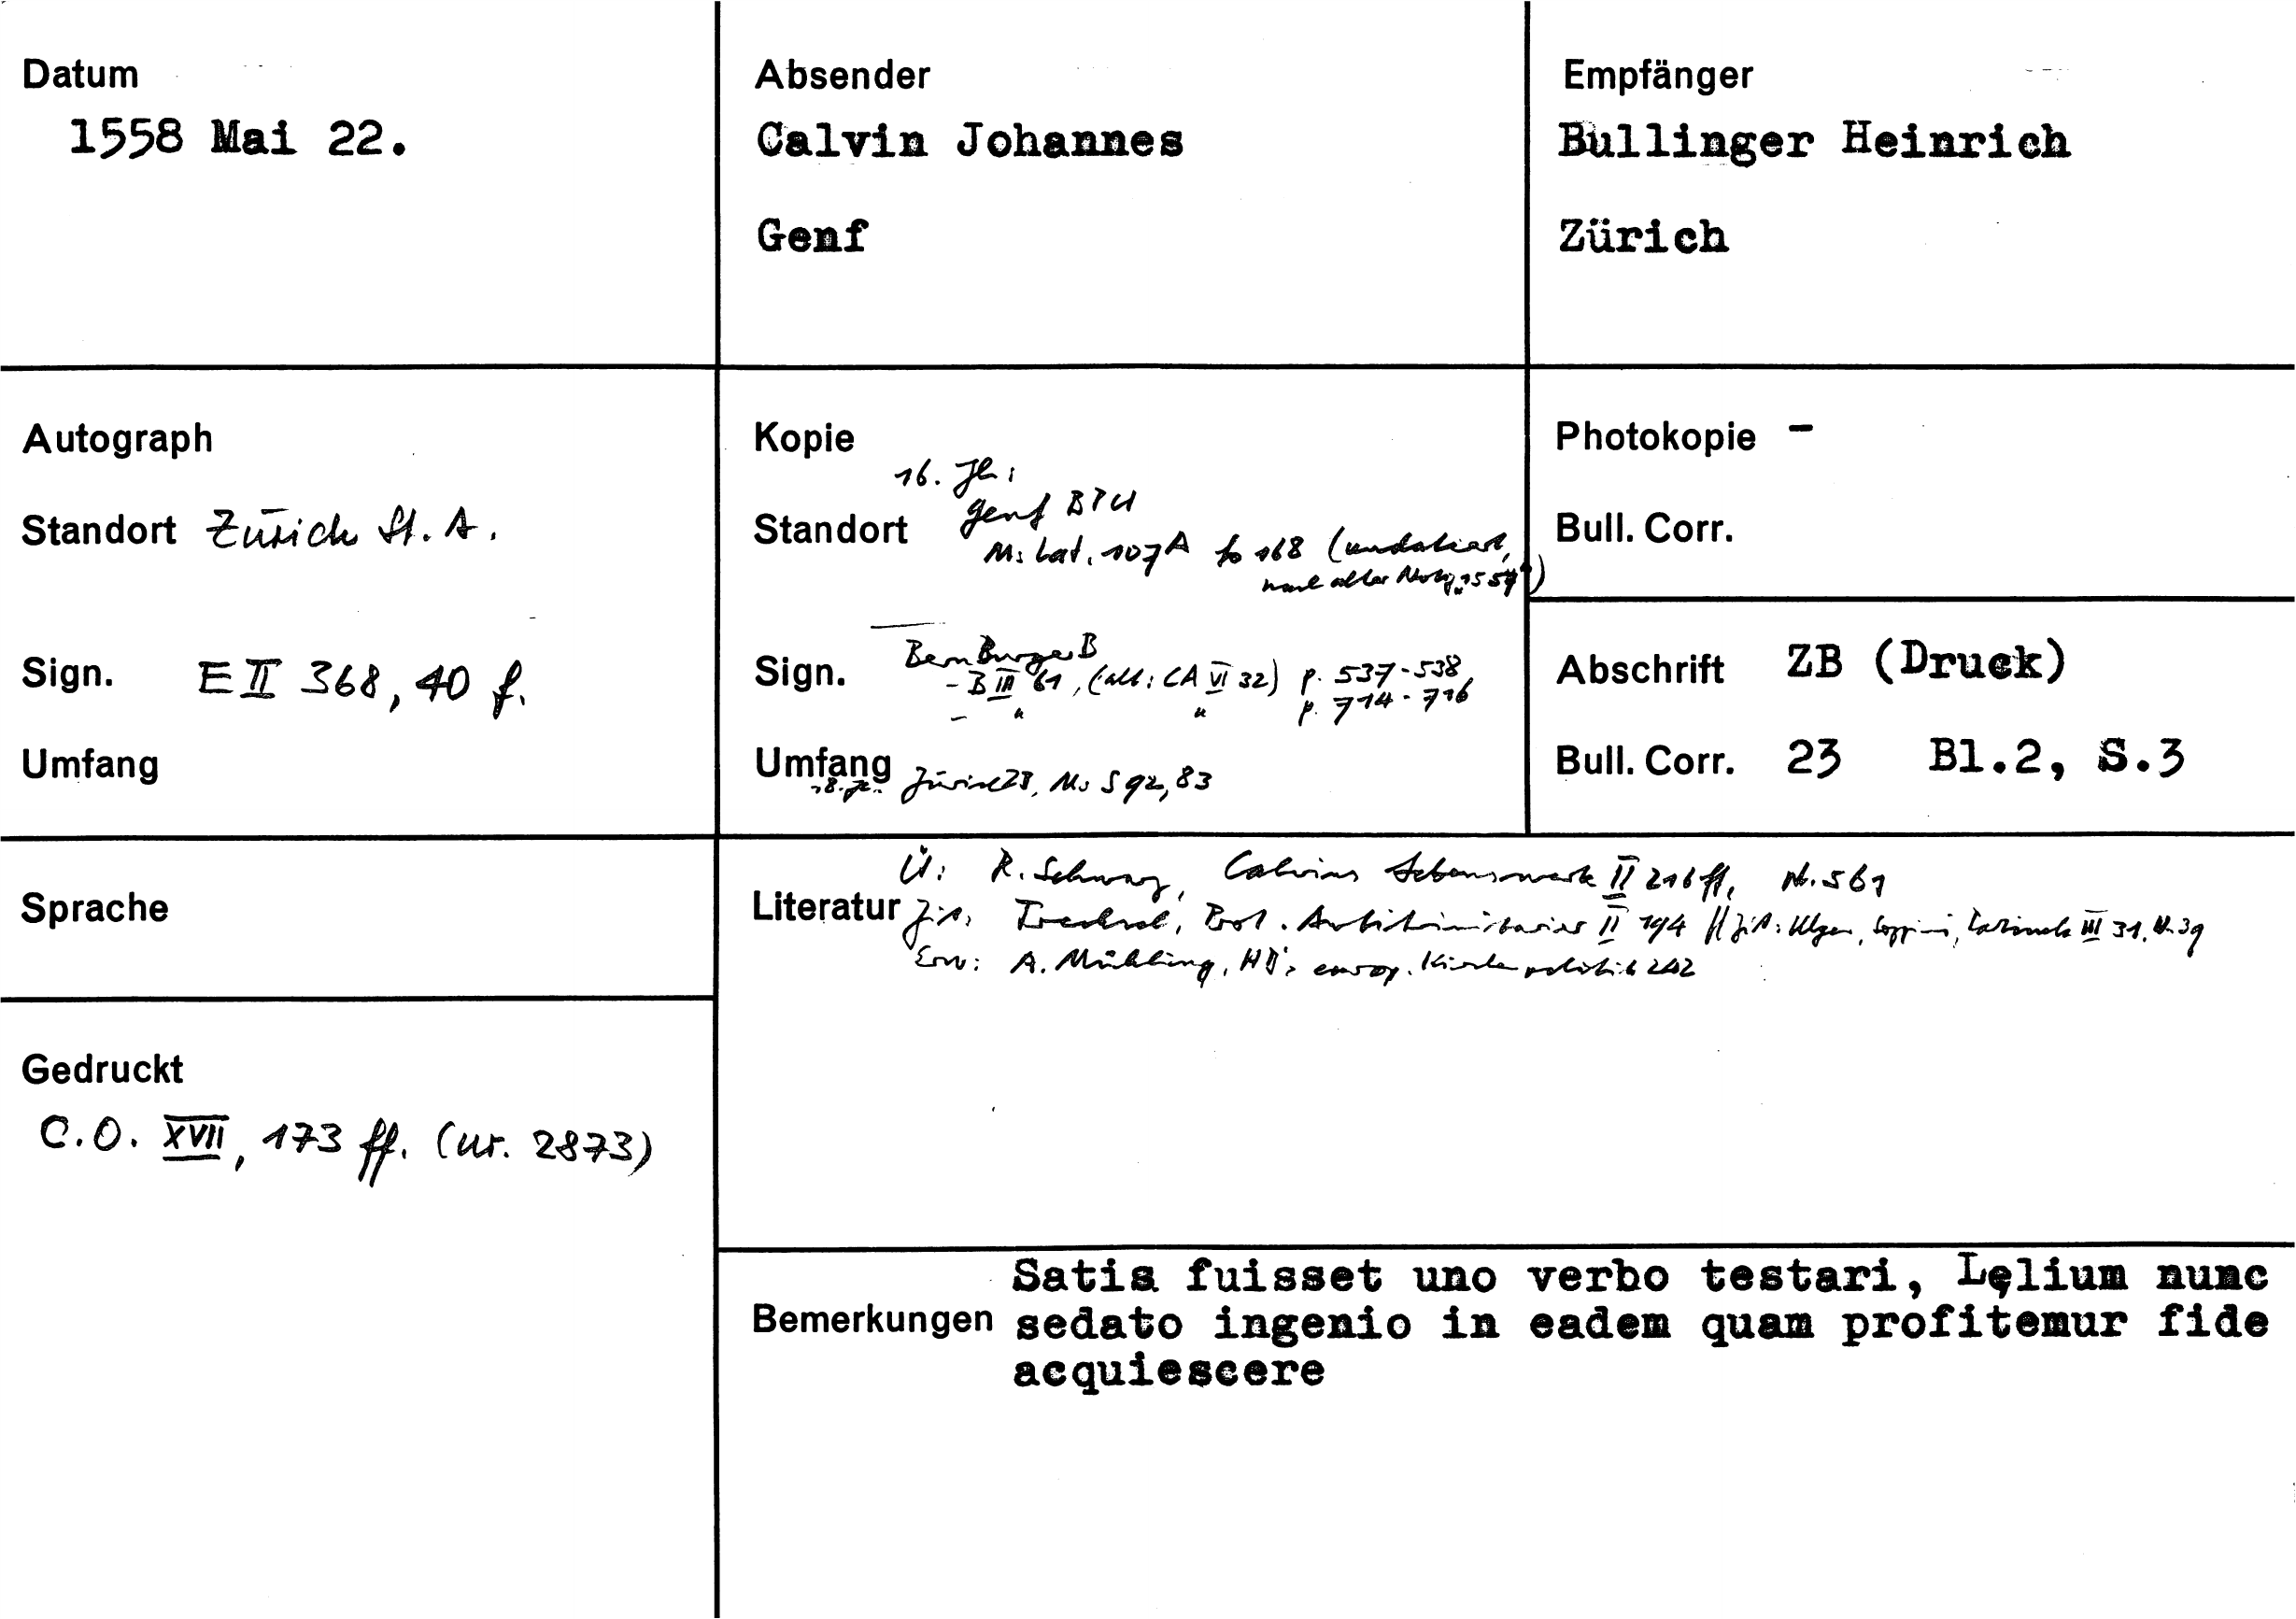 Datum
1558 Mai 22.
Absender
Calvin Johannes
Genf
Empfänger
Bullinger Heinrich
Zürich
Autograph
Standort Zürich St. A.
Sign. E II 368, 40 f.
Umfang
Kopie
16. Jh:
Standort Genf BPU
Ms Lat. 107A fo 168 (undatiert,
nach alter Notiz „1557“)
Sign. Bern BurgerB
- B III 61, (alt: CA VI 32) p. 537-538
- " " p. 714-716
Umfang
18. Jh. Zürich ZB, Ms S 92, 83
Photokopie -
Bull. Corr.
Abschrift ZB (Druck)
Bull. Corr. 23 Bl.2, S.3
Sprache
Gedruckt
C.O. XVII, 173 ff. (nr. 2873)
Ü: R. Schwarz, Calvins Lebenswerk II 216 ff, Nr. 561
Literatur Zit: Trechsel, Prot. Antitrinitarier II 194 // Zit: III 31, N. 39
Erw: A. Mühling, HB's europ. Kirchenpolitik 242
Bemerkungen
Satis fuisset uno verbo testari, Lęlium nunc
sedato ingenio in eadem quam profitemur fide
acquiescere